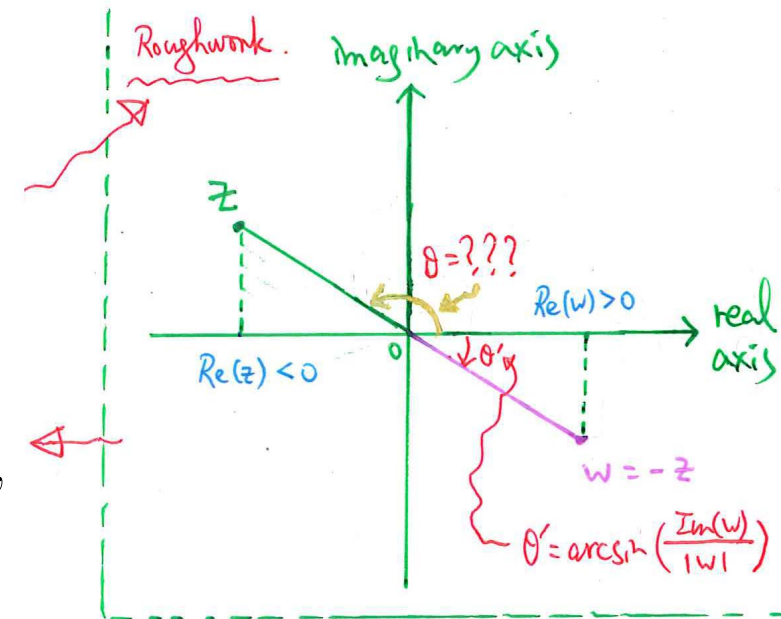 Roughwork.
imaginary axis
Z
θ=???
Re(w)>0
real
axis
0
θ'
Re(z)<0
w = -z
θ'=arcsin(Im(w)/|w|)
,